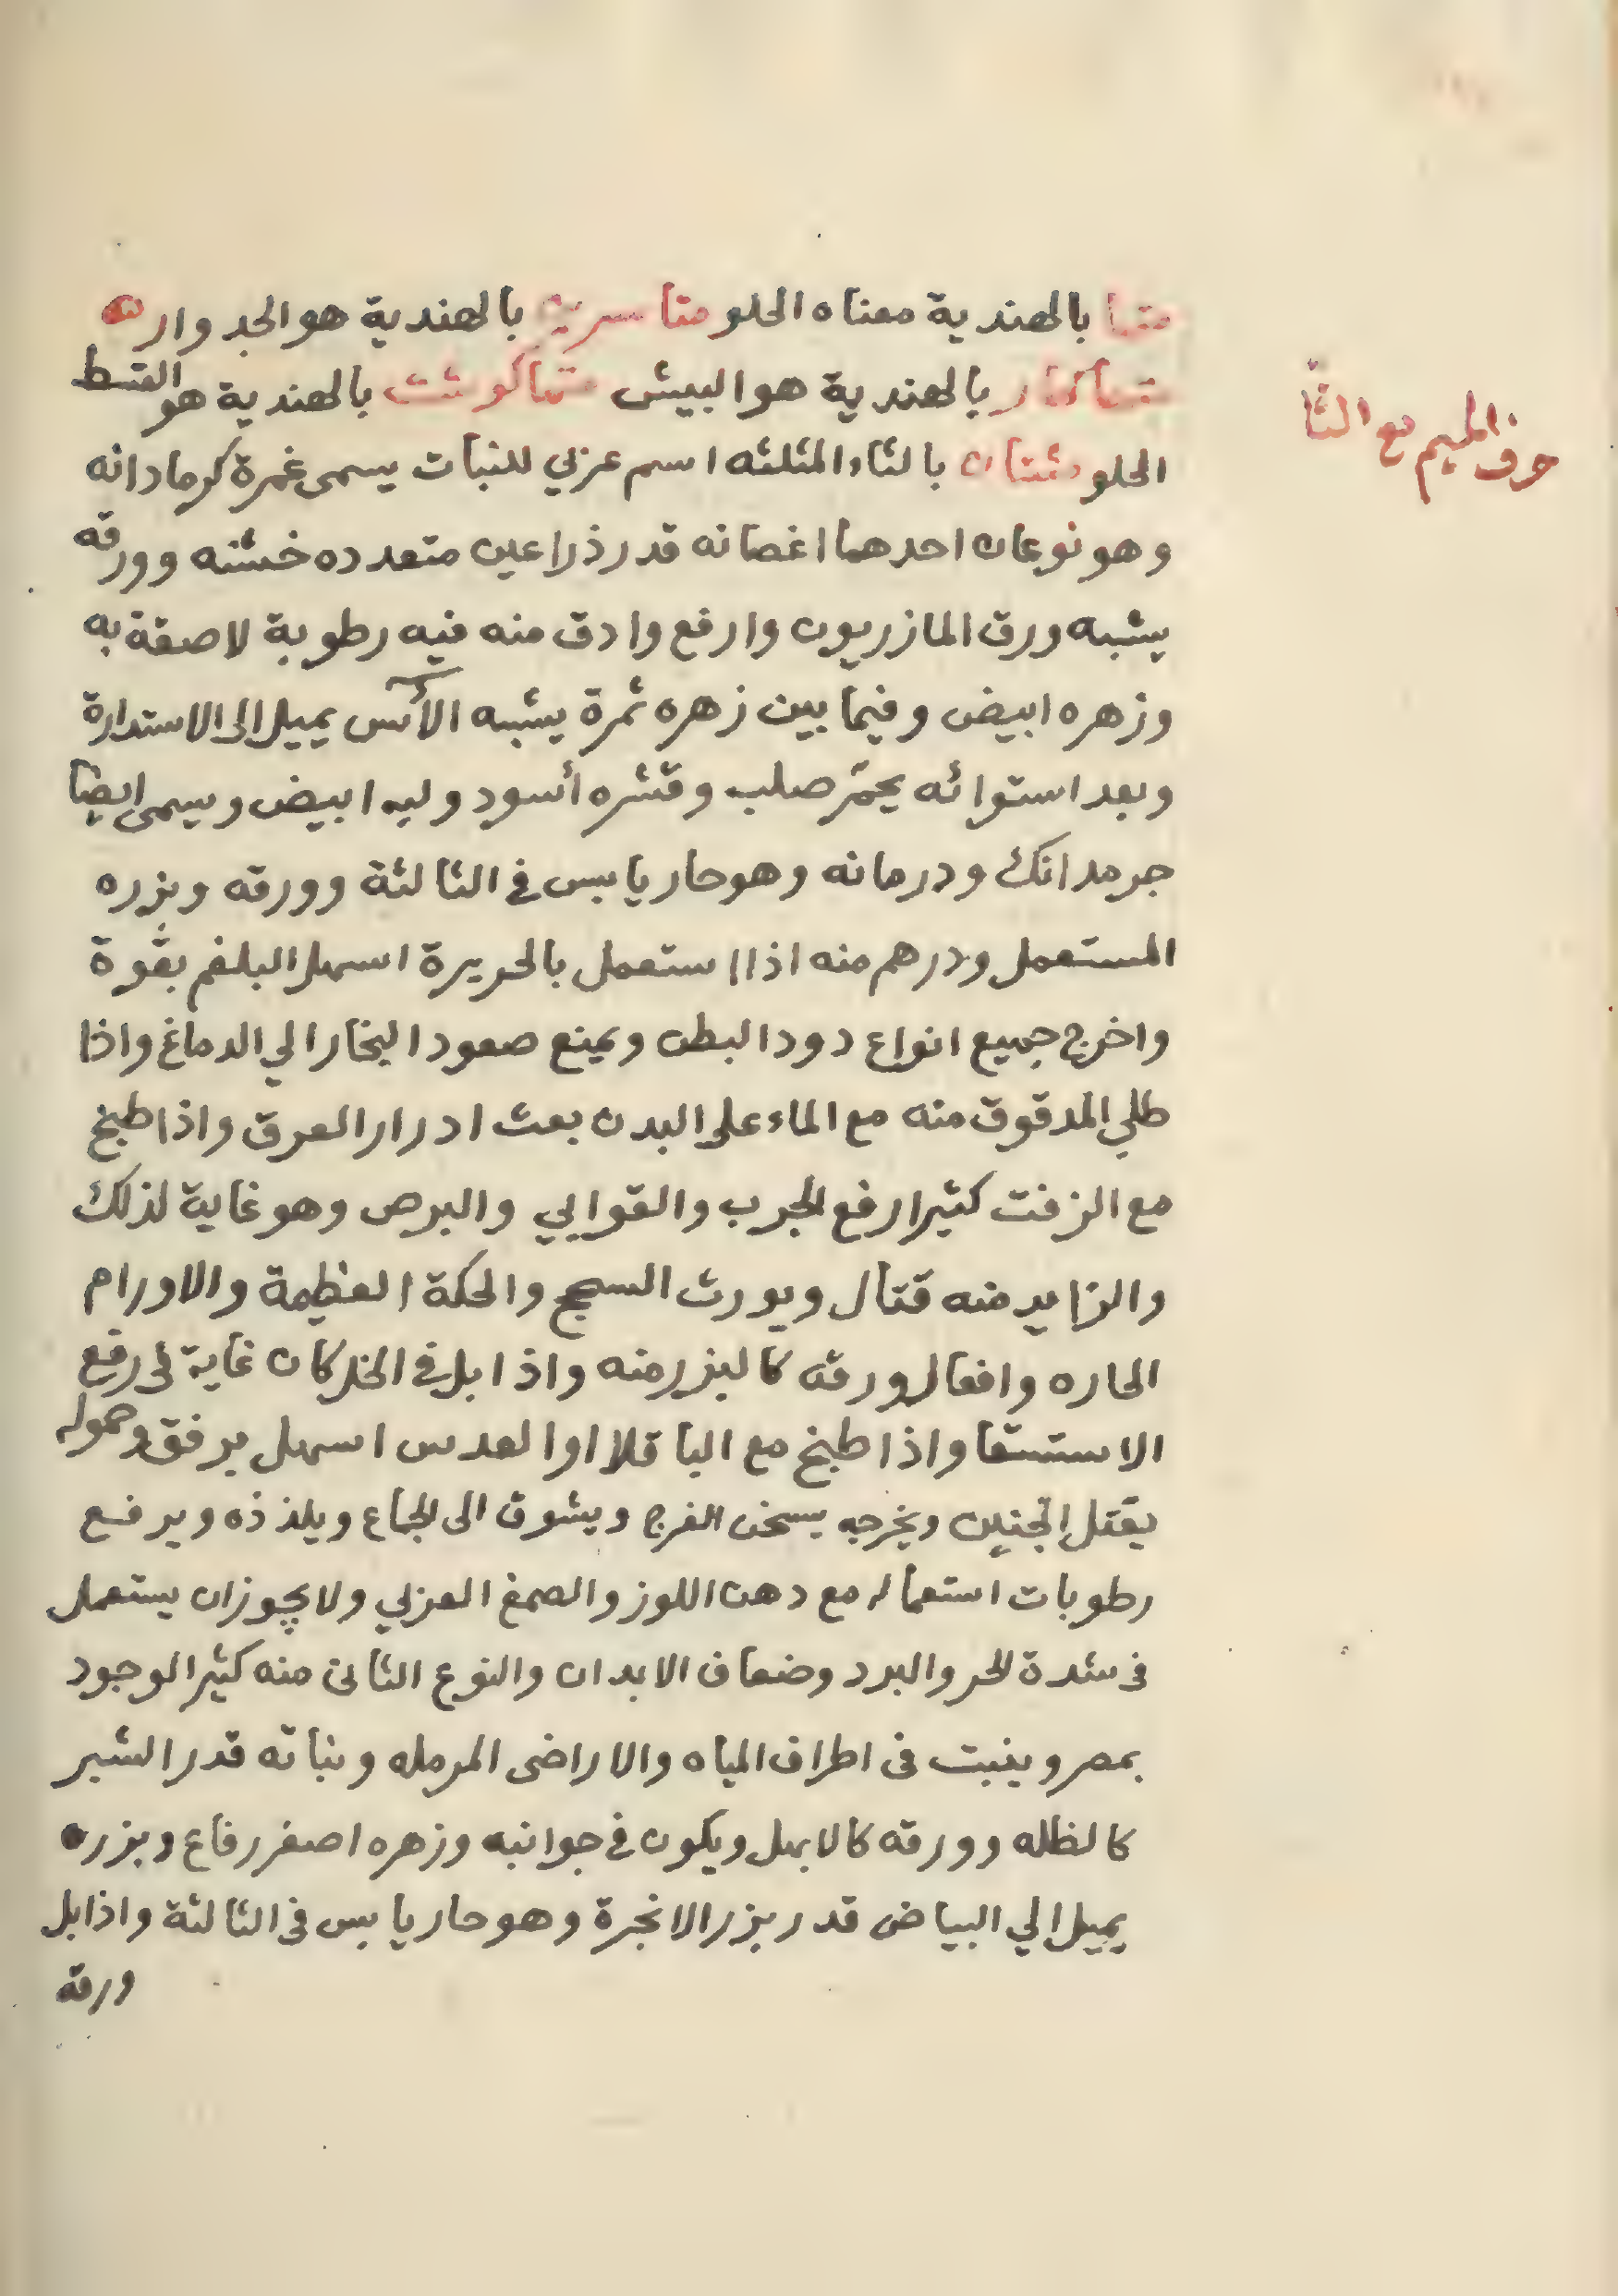 حرف الميم مع الثا
متها بالهندية معناه الحلو متا سرية بالهندية هو الجدوار
بالهندية هو البيش متها كوشت بالهندية هو القسط
الحلو مثنان بالثاء المثلثه اسم عربي للنبات يسمى غمرة كرمادانه
وهو نوعان احدهما اغصانه قدر ذراعين متعدده خشنه وورقه
يشبه ورق المازريون وارفع وادق منه فيه رطوبة لاصقة به
وزهره ابيض وفيما بين زهره ثمرة يشبه الآس يميل الى الاستدارة
وبعد استوائه يحمّر صلب وقشره أسود ولبه ابيض ويسمى ايضا
جرمدانك ودرمانه وهو حار يابس في الثالثة وورقه وبزره
المستعمل ودرهم منه اذا استعمل بالحريرة اسهل البلغم بقوة
واخرج جميع انواع دود البطن ويمنع صعود البخار الي الدماغ واذا
طلي المدقوق منه مع الماء على البدن بعث ادرار العرق واذا طبخ
مع الزفت كثيرا رفع الجرب والقوابي والبرص وهو غاية لذلك
والزايد منه قتال ويورث السحج والحكة العظيمة والاورام
الحاره وافعال ورقه كالبزر منه واذا بل في الخل كان غاية في رفع
الاستسقا واذا طبخ مع الباقلا او العدس اسهل برفق وحموله
يقتل الجنين ويخرجه يسخن الفرج ويشوق الى الجماع ويلذذه ويرفع
رطوبات استعماله مع دهن اللوز والصمغ العربي ولا يجوز ان يستعمل
في شدة الحر والبرد وضعاف الابدان والنوع الثانى منه كثير الوجود
بمصر وينبت فى اطراف المياه والاراضى المرمله ونباته قدر الشبر
كالظله وورقه كالابهل ويكون في جوانبه وزهره اصفر رفاع وبزره
يميل الي البياض قدر بزر الانجرة وهو حار يابس فى الثالثة واذا بل
ورقه